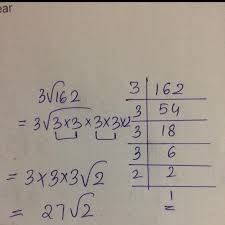 ear
3√162
= 3√3×3×3×3×2
= 3×3×3√2
= 27√2
3 | 162
3 | 54
3 | 18
3 | 6
2 | 2
1